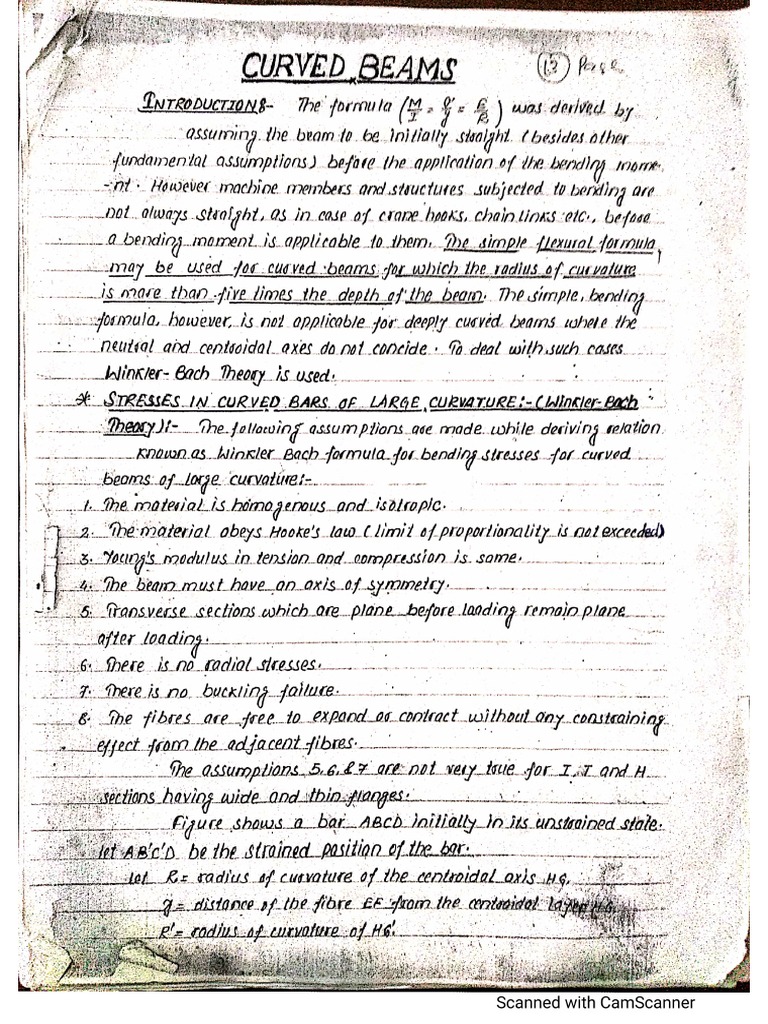 CURVED BEAMS
(13) Page
INTRODUCTION:- The formula (M/I = σ/y = E/R) was derived by
assuming the beam to be initially straight (besides other
fundamental assumptions) before the application of the bending mome-
-nt. However machine members and structures subjected to bending are
not always straight, as in case of crane hooks, chain links etc., before
a bending moment is applicable to them. The simple flexural formula,
may be used for curved beams for which the radius of curvature
is more than five times the depth of the beam. The simple, bending
formula, however, is not applicable for deeply curved beams where the
neutral and centroidal axes do not concide. To deal with such cases
Winkler-Bach Theory is used.
* STRESSES IN CURVED BARS OF LARGE CURVATURE:-(Winkler-Bach
Theory):- The following assumptions are made while deriving relation
known as Winkler Bach formula for bending stresses for curved
beams of large curvature:-
1. The material is homogenous and isotropic.
2. The material obeys Hooke's law (limit of proportionality is not exceeded)
3. Young's modulus in tension and compression is same.
4. The beam must have an axis of symmetry.
5. Transverse sections which are plane before loading remain plane
after loading.
6. There is no radial stresses.
7. There is no buckling failure.
8. The fibres are free to expand or contract without any constraining
effect from the adjacent fibres.
The assumptions 5, 6, & 7 are not very true for I, T and H
sections having wide and thin flanges.
Figure shows a bar ABCD initially in its unstrained state.
let AB'C'D be the strained position of the bar.
let R = radius of curvature of the centroidal axis HG.
y = distance of the fibre EF from the centroidal layer HG.
R' = radius of curvature of HG'.
Scanned with CamScanner